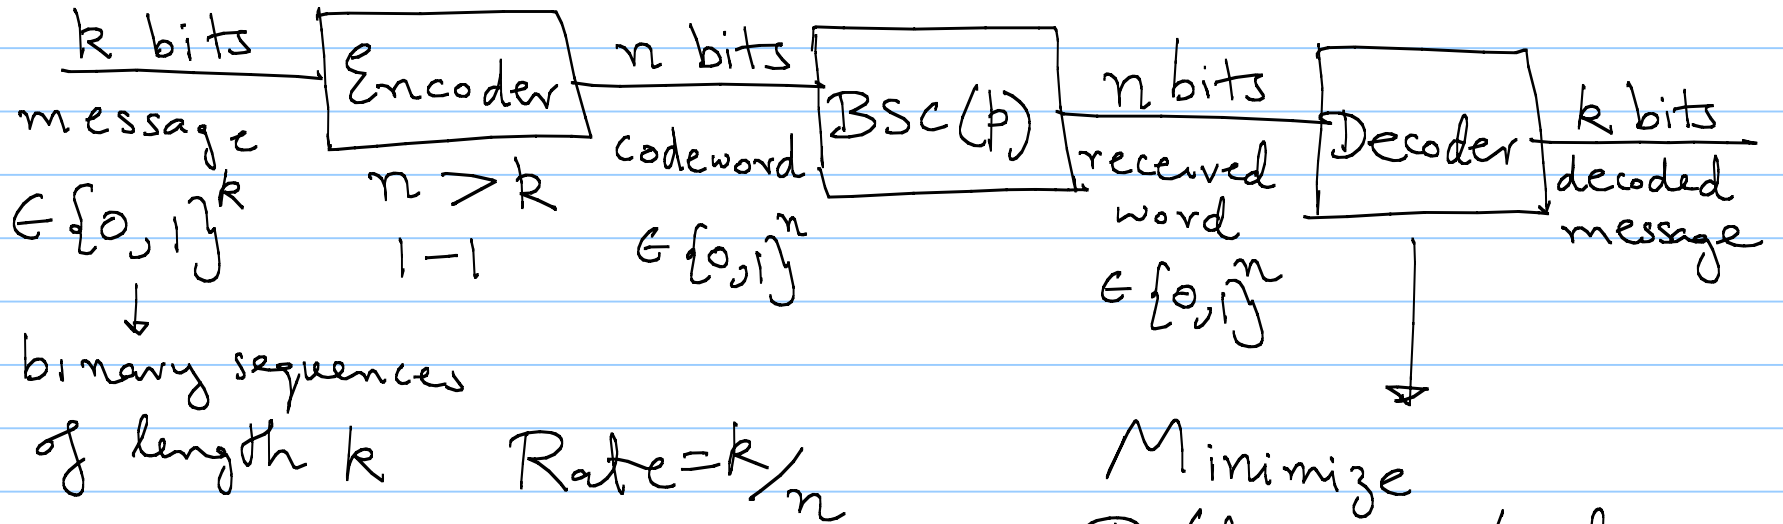 k bits
message
∈ {0,1}^k
↓
binary sequences
of length k
Encoder
n > k
1-1
n bits
codeword
∈ {0,1}^n
BSC(p)
n bits
received
word
∈ {0,1}^n
Decoder
k bits
decoded
message
Rate = k/n
Minimize